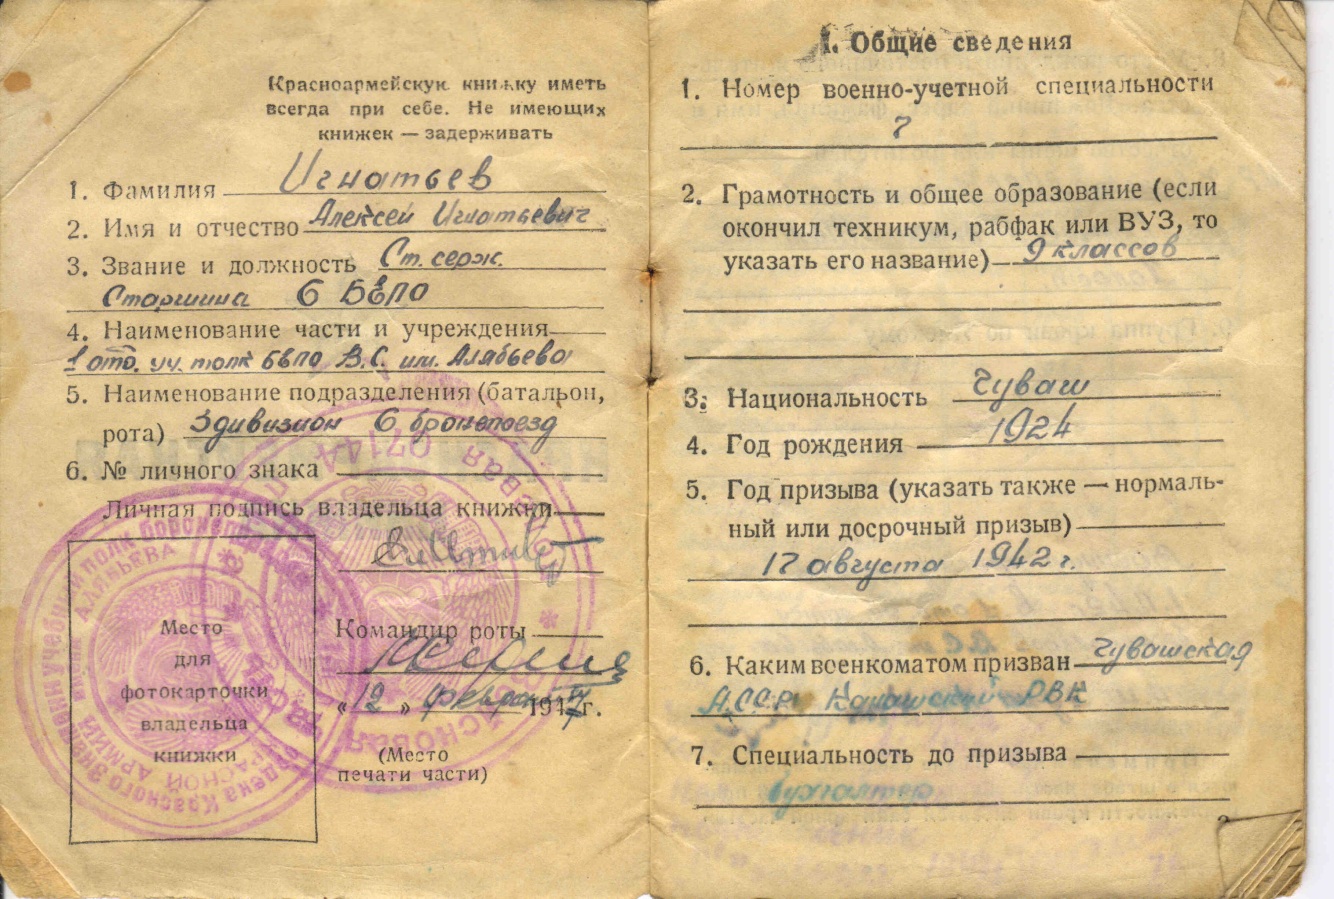 Красноармейскую книжку иметь
всегда при себе. Не имеющих
книжек — задерживать
1. Фамилия Игнатьев
2. Имя и отчество Алексей Игнатьевич
3. Звание и должность Ст. серж.
Старшина 6 БЕПО
4. Наименование части и учреждения
1 отд. уч. полк БЕПО В.С. им. Алябьева
5. Наименование подразделения (батальон,
рота) 3 дивизион 6 бронепоезд
6. № личного знака
Личная подпись владельца книжки
Место
для
фотокарточки
владельца
книжки
Командир роты
«12» февраля 1947 г.
(Место
печати части)
I. Общие сведения
1. Номер военно-учетной специальности
7
2. Грамотность и общее образование (если
окончил техникум, рабфак или ВУЗ, то
указать его название) 9 классов
3. Национальность Чуваш
4. Год рождения 1924
5. Год призыва (указать также — нормаль-
ный или досрочный призыв)
17 августа 1942 г.
6. Каким военкоматом призван Чувашская
АССР Канашский РВК
7. Специальность до призыва
бухгалтер